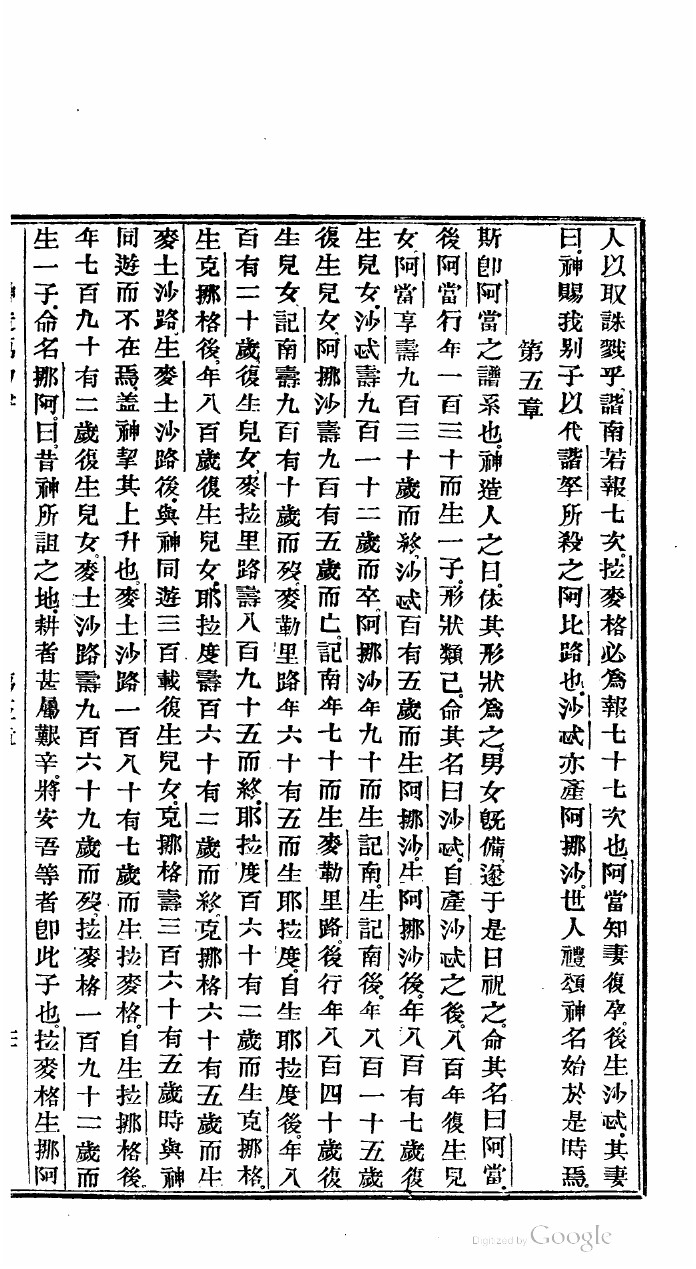 人以取誅戮乎、諧南若報七次、拉麥格必爲報七十七次也、阿當知妻復孕。後生沙忒、其妻
曰、神賜我别子以代諧拏所殺之阿比路也、沙忒亦產阿挪沙、世人禮頌神名始於是時焉。
第五章
斯卽阿當之譜系也。神造人之日、依其形狀爲之、男女旣備、遂于是日祝之。命其名曰阿當。
後阿當行年一百三十而生一子、形狀類己、命其名曰沙忒、自產沙忒之後、八百年復生兒
女、阿當享壽九百三十歲而終、沙忒百有五歲而生阿挪沙、生阿挪沙後、年八百有七歲復
生兒女、沙忒壽九百一十二歲而卒、阿挪沙年九十而生記南、生記南後、年八百一十五歲
復生兒女、阿挪沙壽九百有五歲而亡、記南年七十而生麥勒里路、後行年八百四十歲復
生兒女、記南壽九百有十歲而歿、麥勒里路年六十有五而生耶拉度、自生耶拉度後、年八
百有二十歲、復生兒女、麥拉里路壽八百九十五而終、耶拉度百六十有二歲而生克挪格、
生克挪格後、年八百歲復生兒女、耶拉度壽百六十有二歲而終、克挪格六十有五歲而生
麥土沙路、生麥土沙路後、與神同遊三百載復生兒女、克挪格壽三百六十有五歲時與神
同遊而不在焉、盖神挈其上升也、麥土沙路一百八十有七歲而生拉麥格、自生拉挪格後、
年七百九十有二歲復生兒女、麥土沙路壽九百六十九歲而歿、拉麥格一百九十二歲而
生一子、命名挪阿、曰、昔神所詛之地、耕者甚屬艱辛、將安吾等者卽此子也、拉麥格生挪阿
Digitized by Google